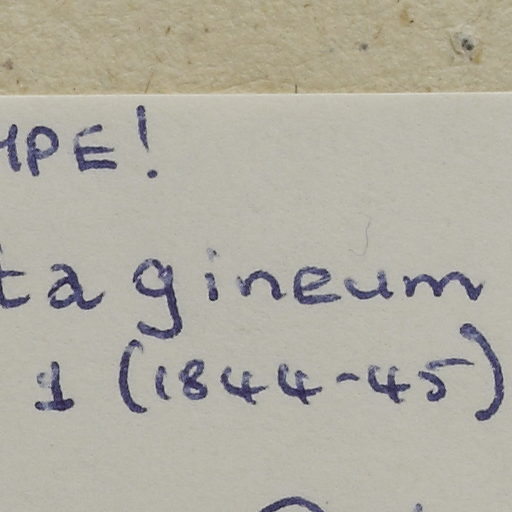 MPE!
tagineum
1 (1844-45)